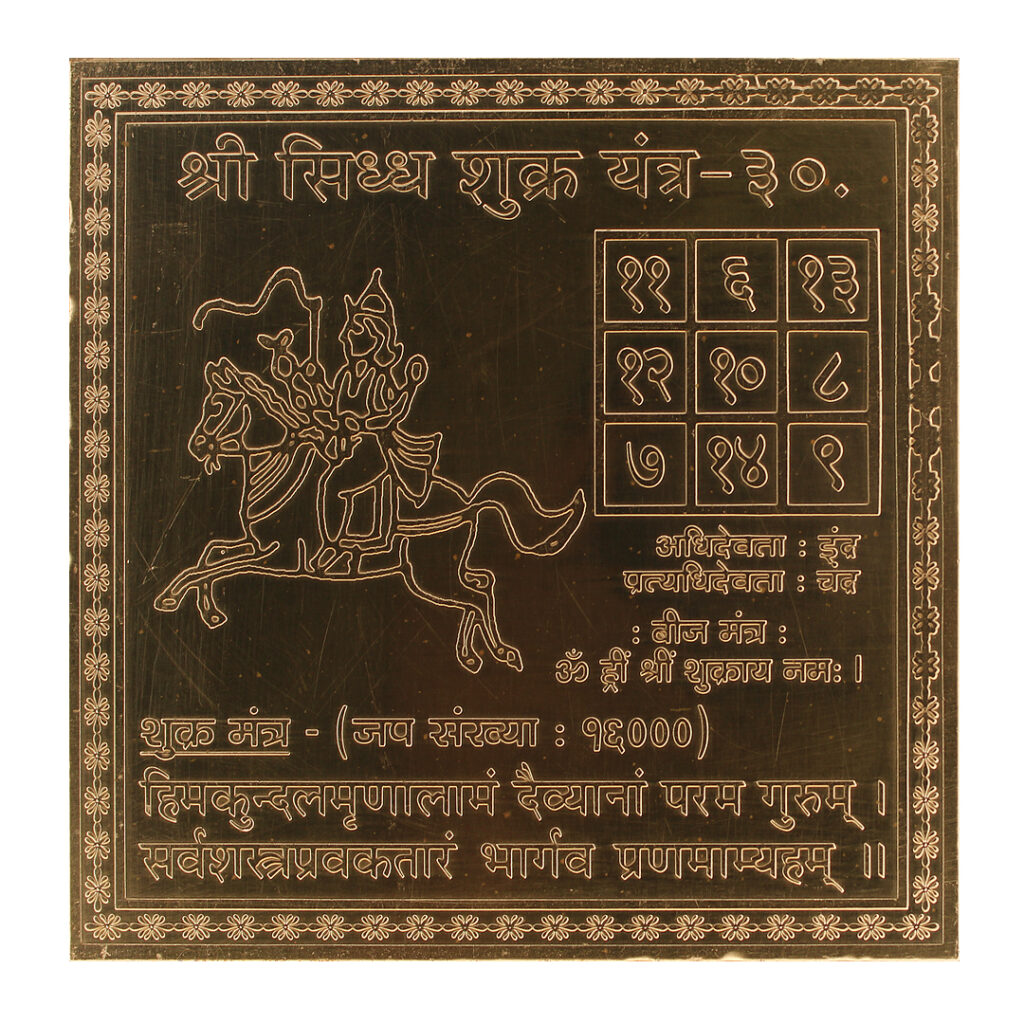 श्री सिध्ध शुक्र यंत्र-३०.
११ ६ १३
१२ १० ८
७ १४ ९
अधिदेवता : इंद्र
प्रत्यधिदेवता : चद्र
: बीज मंत्र :
ॐ ह्रीं श्रीं शुक्राय नमः।
शुक्र मंत्र - (जप संख्या : १६०००)
हिमकुन्दलमृणालामं दैव्यानां परम गुरुम् ।
सर्वशस्त्रप्रवकतारं भार्गव प्रणमाम्यहम् ॥